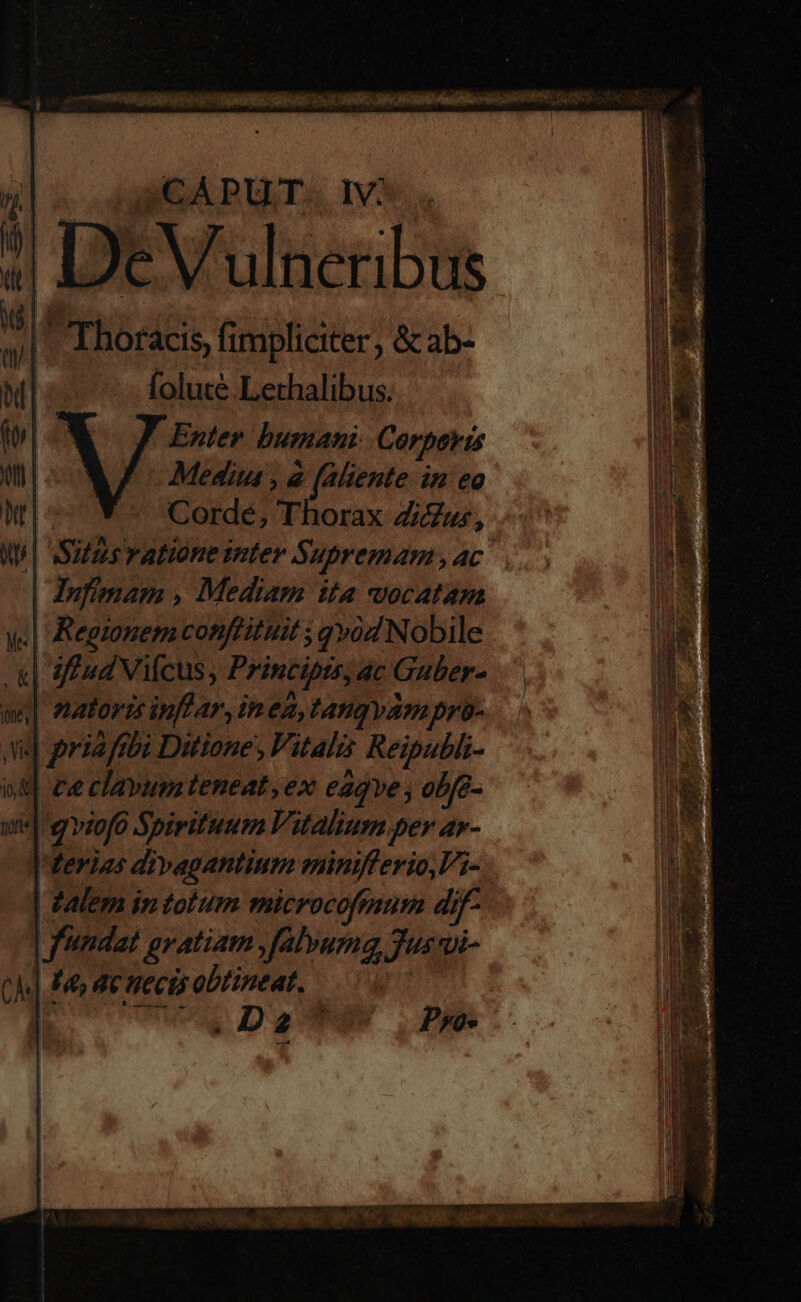 CAPUT. IV.
De Vulneribus
Thoracis, ſimpliciter, & ab-
ſolutè Lethalibus.
VEnter humani Corporis
Medius, à ſaliente in eo
Corde, Thorax dictus,
Sitûs ratione inter Supremam, ac
Infimam, Mediam ita vocatam
Regionem conſtituit; qvòd Nobile
iſtud Viſcus, Principis, ac Guber-
natoris inſtar, in eâ, tanqvàm pro-
priâ ſibi Ditione, Vitalis Reipubli-
cæ clavum teneat, ex eâqve, obſe-
qvioſo Spirituum Vitalium per ar-
terias divagantium miniſterio, Vi-
talem in totum microcoſmum dif-
fundat gratiam, ſalvumq, Jus vi-
tæ, ac necis obtineat.
D 2 Pro-